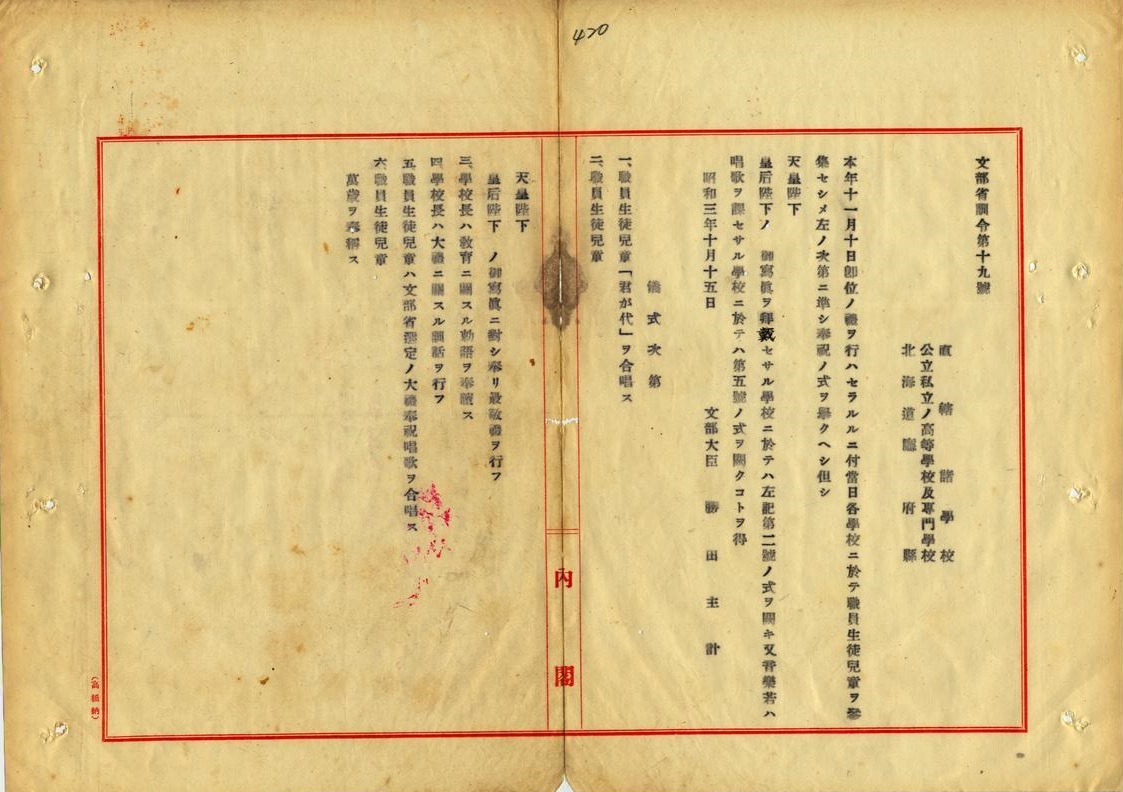 420
文部省訓令第十九號
直轄諸學校
公立私立ノ高等學校及專門學校
北海道廳府縣
本年十一月十日卽位ノ禮ヲ行ハセラルルニ付當日各學校ニ於テ職員生徒兒童ヲ參
集セシメ左ノ次第ニ準シ奉祝ノ式ヲ擧クヘシ但シ
天皇陛下
皇后陛下ノ御寫眞ヲ拜戴セサル學校ニ於テハ左記第二號ノ式ヲ闕キ又音樂若ハ
唱歌ヲ課セサル學校ニ於テハ第五號ノ式ヲ闕クコトヲ得
昭和三年十月十五日
文部大臣 勝田主計
儀式次第
一、職員生徒兒童「君が代」ヲ合唱ス
二、職員生徒兒童
天皇陛下
皇后陛下 ノ御寫眞ニ對シ奉リ最敬禮ヲ行フ
三、學校長ハ敎育ニ關スル勅語ヲ奉讀ス
四、學校長ハ大禮ニ關スル訓話ヲ行フ
五、職員生徒兒童ハ文部省選定ノ大禮奉祝唱歌ヲ合唱ス
六、職員生徒兒童
萬歲ヲ奉稱ス
內閣
(高橋納)